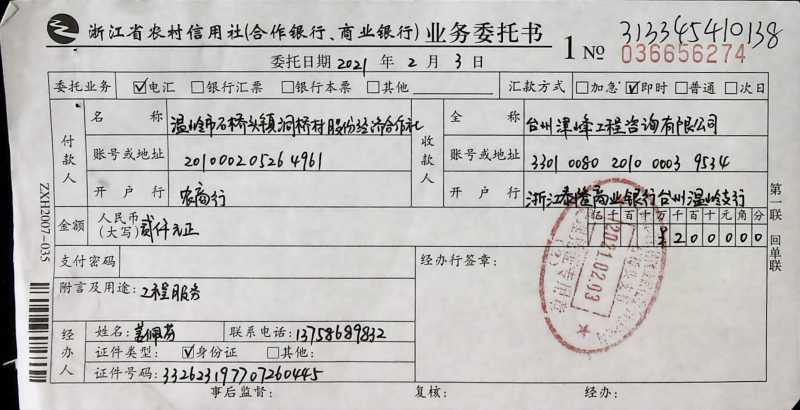 浙江省农村信用社(合作银行、商业银行) 业务委托书
313345410138
1 № 036656274
委托日期 2021 年 2 月 3 日
委托业务 ☑电汇 □银行汇票 □银行本票 □其他 汇款方式 □加急 ☑即时 □普通 □次日
付款人 名称 温岭市石桥头镇洞桥村股份经济合作社
账号或地址 201000205264961
开户行 农商行
收款人 全称 台州津峰工程咨询有限公司
账号或地址 3301 0080 2010 0003 9534
开户行 浙江泰隆商业银行台州温岭支行
金额 人民币(大写) 贰仟元正
亿千百十万千百十元角分
¥200000
支付密码
附言及用途: 工程服务
经办行签章:
2021.02.03
经办人 姓名: 佩芬 联系电话: 13758689832
证件类型: ☑身份证 □其他:
证件号码: 332623197707260445
事后监督: 复核: 经办:
第一联 回单联
ZXH2007-035